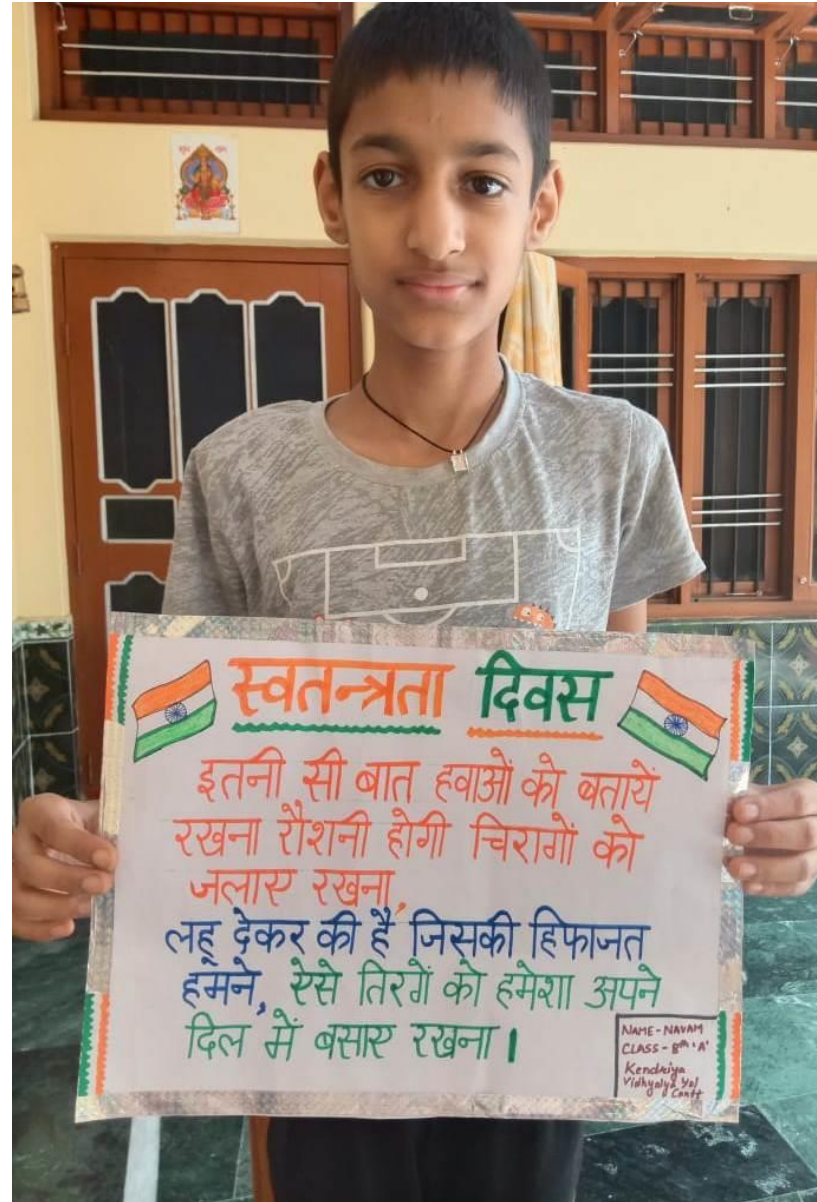 स्वतन्त्रता दिवस
इतनी सी बात हवाओं को बतायें
रखना रौशनी होगी चिरागों को
जलाए रखना,
लहू देकर की है जिसकी हिफाजत
हमने, ऐसे तिरगें को हमेशा अपने
दिल में बसाए रखना।
NAME - NAVAM
CLASS - 8th 'A'
Kendriya
Vidhyalya Yol
Cantt